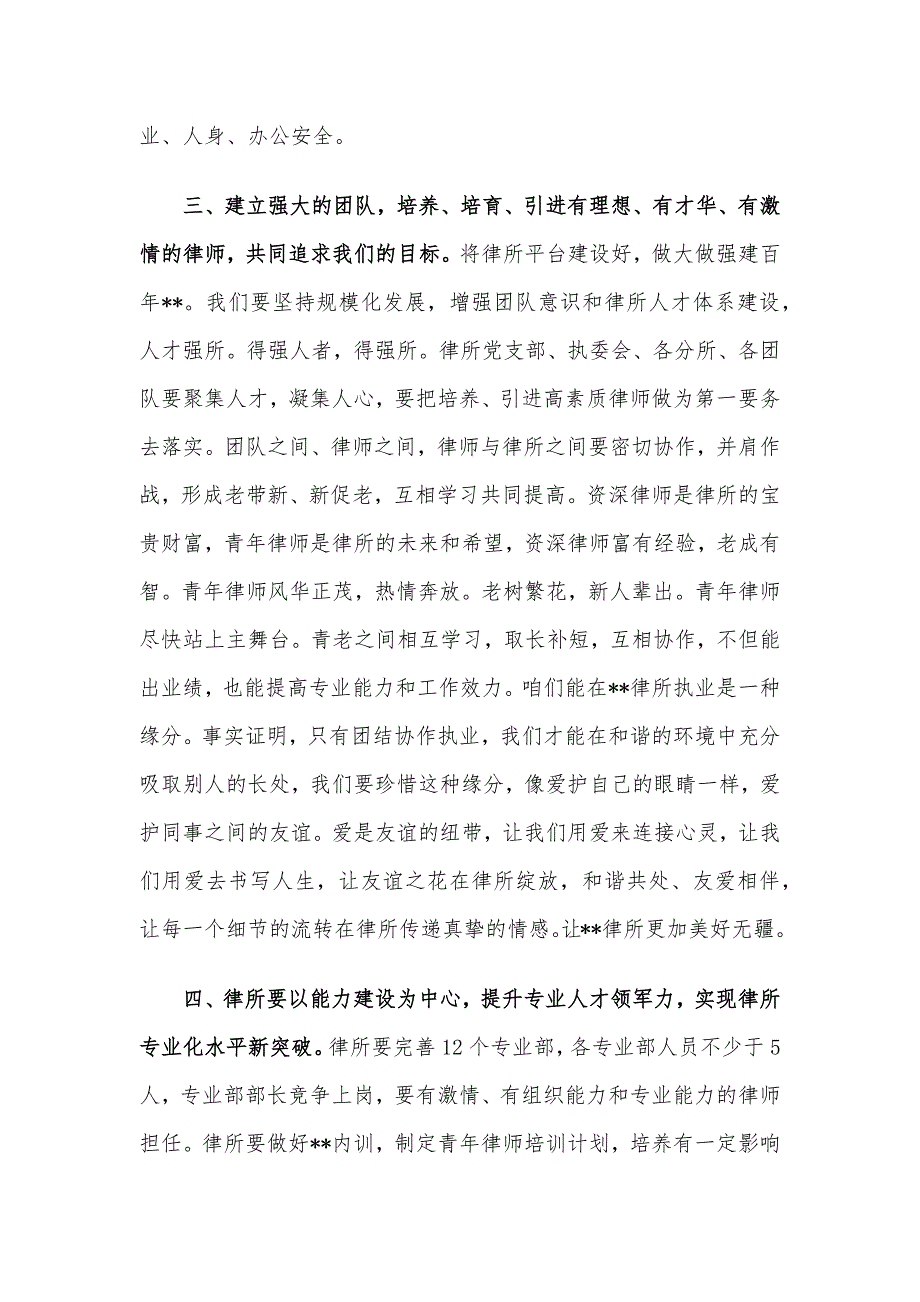 业、人身、办公安全。
三、建立强大的团队，培养、培育、引进有理想、有才华、有激
情的律师，共同追求我们的目标。将律所平台建设好，做大做强建百
年**。我们要坚持规模化发展，增强团队意识和律所人才体系建设，
人才强所。得强人者，得强所。律所党支部、执委会、各分所、各团
队要聚集人才，凝集人心，要把培养、引进高素质律师做为第一要务
去落实。团队之间、律师之间，律师与律所之间要密切协作，并肩作
战，形成老带新、新促老，互相学习共同提高。资深律师是律所的宝
贵财富，青年律师是律所的未来和希望，资深律师富有经验，老成有
智。青年律师风华正茂，热情奔放。老树繁花，新人辈出。青年律师
尽快站上主舞台。青老之间相互学习，取长补短，互相协作，不但能
出业绩，也能提高专业能力和工作效力。咱们能在**律所执业是一种
缘分。事实证明，只有团结协作执业，我们才能在和谐的环境中充分
吸取别人的长处，我们要珍惜这种缘分，像爱护自己的眼睛一样，爱
护同事之间的友谊。爱是友谊的纽带，让我们用爱来连接心灵，让我
们用爱去书写人生，让友谊之花在律所绽放，和谐共处、友爱相伴，
让每一个细节的流转在律所传递真挚的情感。让**律所更加美好无疆。
四、律所要以能力建设为中心，提升专业人才领军力，实现律所
专业化水平新突破。律所要完善 12 个专业部，各专业部人员不少于 5
人，专业部部长竞争上岗，要有激情、有组织能力和专业能力的律师
担任。律所要做好**内训，制定青年律师培训计划，培养有一定影响